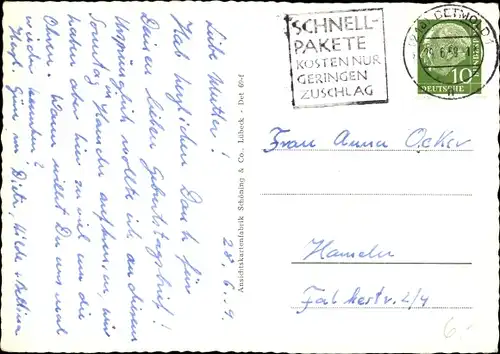 SCHNELL-
PAKETE
KOSTEN NUR
GERINGEN
ZUSCHLAG
DETMOLD
10
DEUTSCHE
28. 6. 9.
Liebe Mutter!
Hab herzlichen Dank für
Deinen lieben Geburtstagsbrief!
Ursprünglich wollte ich an diesem
Sonntag in Hameln aufkreuzen, wir
haben aber hier zu viel um die
Ohren. Wann willst Du uns mal
wieder
Dieter, Hilde + Bettina
Ansichtskartenfabrik Schöning & Co., Lübeck · Det 69
Frau Anna Ocker
Hameln
Falkestr. 2/4
6,-